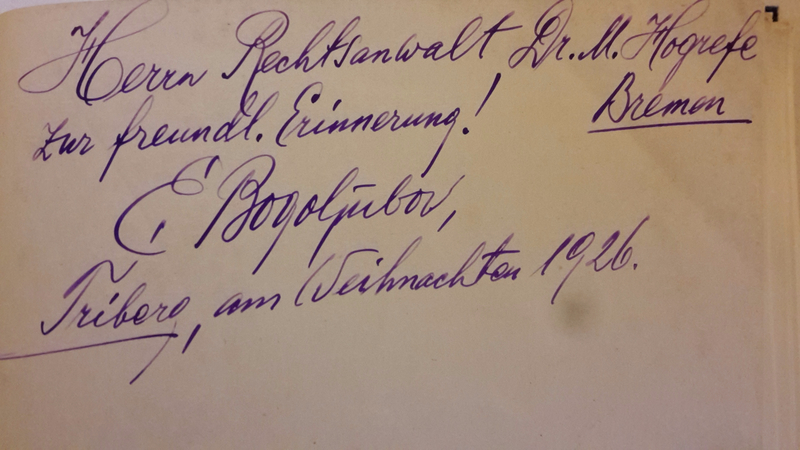 Herrn Rechtsanwalt Dr. M. Hogrefe
Bremen
zur freundl. Erinnerung!
E Bogoljubov,
Triberg, am Weihnachten 1926.